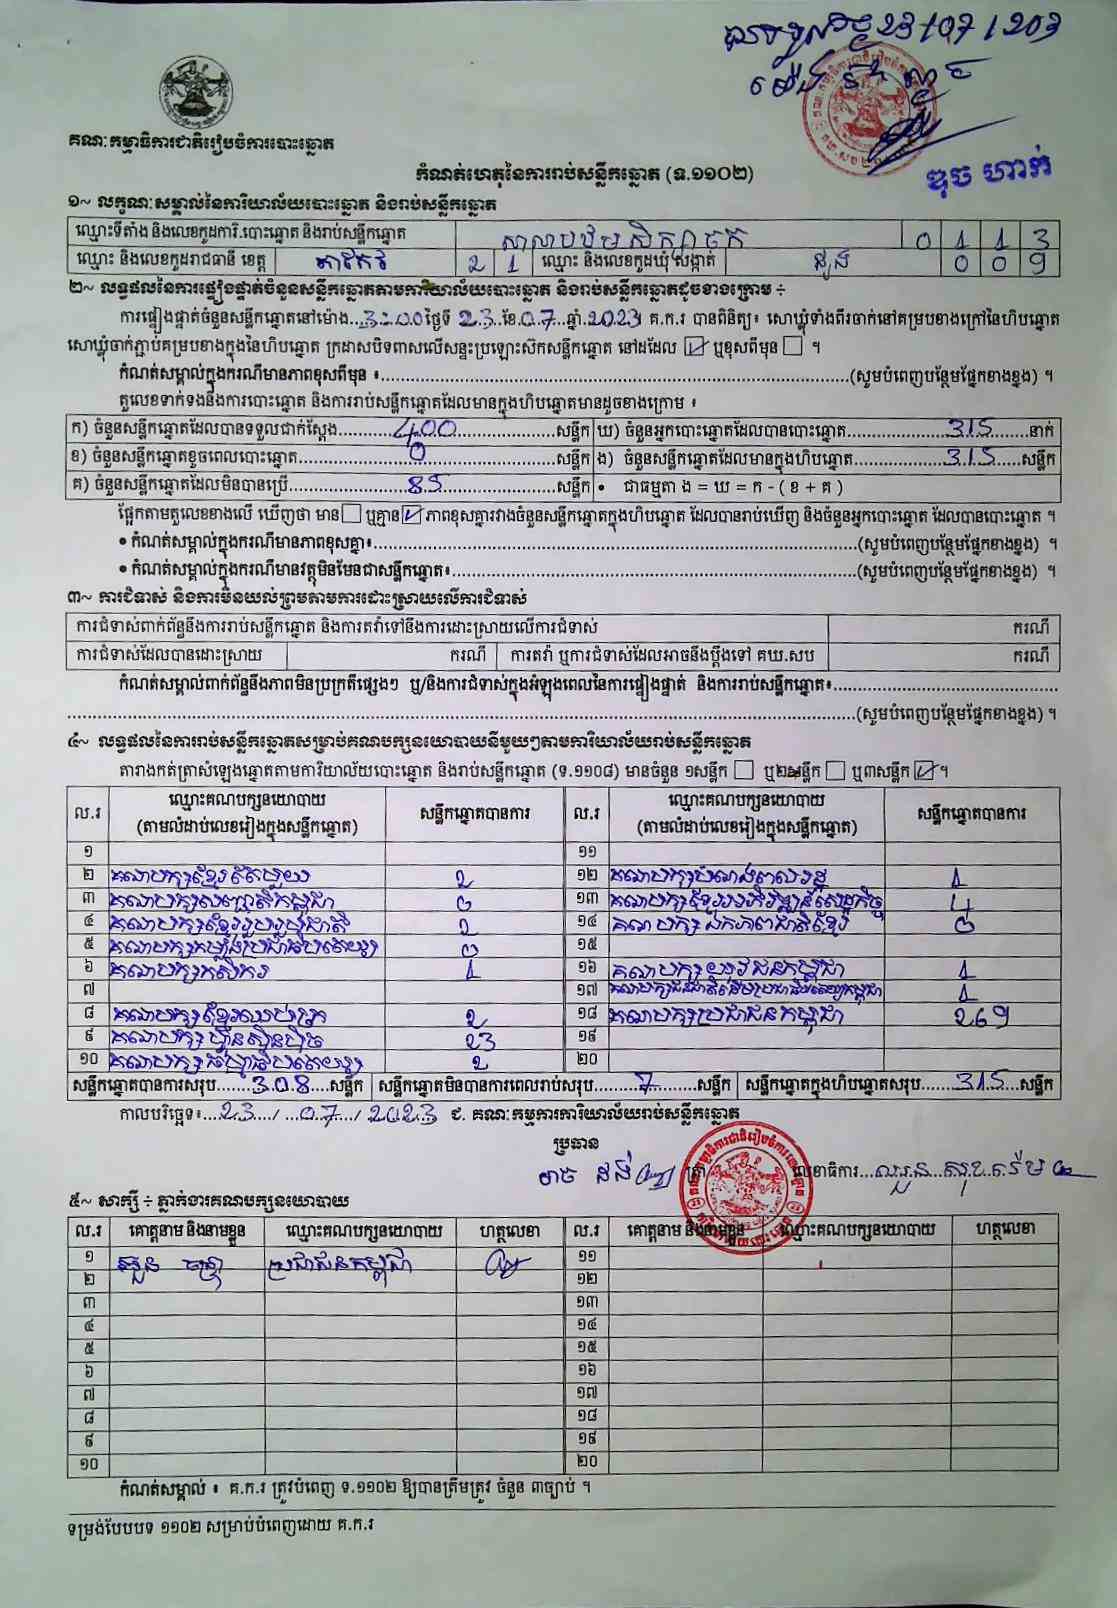 23/07/202
គណៈកម្មាធិការជាតិរៀបចំការបោះឆ្នោត
កំណត់ហេតុនៃការរាប់សន្លឹកឆ្នោត (ទ.១១០២)
ឌុច ហាក់
១~ លក្ខណៈសម្គាល់នៃការិយាល័យបោះឆ្នោត និងរាប់សន្លឹកឆ្នោត
ឈ្មោះទីតាំង និងលេខកូដការិ.បោះឆ្នោត និងរាប់សន្លឹកឆ្នោត សាលាបឋមសិក្សាចក 0 1 1 3
ឈ្មោះ និងលេខកូដរាជធានី ខេត្ត តាកែវ 2 1 ឈ្មោះ និងលេខកូដឃុំ សង្កាត់ 0 0 9
២~ លទ្ធផលនៃការផ្ទៀងផ្ទាត់ចំនួនសន្លឹកឆ្នោតតាមការិយាល័យបោះឆ្នោត និងរាប់សន្លឹកឆ្នោតដូចខាងក្រោម ÷
ការផ្ទៀងផ្ទាត់ចំនួនសន្លឹកឆ្នោតនៅម៉ោង...3:00 ថ្ងៃទី 23 ខែ.07 ឆ្នាំ.2023 គ.ក.រ បានពិនិត្យ៖ សោឃ្លុំទាំងពីរចាក់នៅគម្របខាងក្រៅនៃហិបឆ្នោត
សោឃ្លុំចាក់ភ្ជាប់គម្របខាងក្នុងនៃហិបឆ្នោត ក្រដាសបិទពាសលើសន្ទះប្រឡោះស៊កសន្លឹកឆ្នោត នៅដដែល ☑ ឬខុសពីមុន ☐ ។
កំណត់សម្គាល់ក្នុងករណីមានភាពខុសពីមុន ៖...(សូមបំពេញបន្ថែមផ្នែកខាងខ្នង) ។
តួលេខទាក់ទងនឹងការបោះឆ្នោត និងការរាប់សន្លឹកឆ្នោតដែលមានក្នុងហិបឆ្នោតមានដូចខាងក្រោម ៖
ក) ចំនួនសន្លឹកឆ្នោតដែលបានទទួលជាក់ស្តែង...400...សន្លឹក ឃ) ចំនួនអ្នកបោះឆ្នោតដែលបានបោះឆ្នោត...315...នាក់
ខ) ចំនួនសន្លឹកឆ្នោតខូចពេលបោះឆ្នោត...0...សន្លឹក ង) ចំនួនសន្លឹកឆ្នោតដែលមានក្នុងហិបឆ្នោត...315...សន្លឹក
គ) ចំនួនសន្លឹកឆ្នោតដែលមិនបានប្រើ...85...សន្លឹក • ជាធម្មតា ង = ឃ = ក - ( ខ + គ )
ផ្អែកតាមតួលេខខាងលើ ឃើញថា មាន ☐ ឬគ្មាន ☑ ភាពខុសគ្នារវាងចំនួនសន្លឹកឆ្នោតក្នុងហិបឆ្នោត ដែលបានរាប់ឃើញ និងចំនួនអ្នកបោះឆ្នោត ដែលបានបោះឆ្នោត ។
• កំណត់សម្គាល់ក្នុងករណីមានភាពខុសគ្នា៖...(សូមបំពេញបន្ថែមផ្នែកខាងខ្នង) ។
• កំណត់សម្គាល់ក្នុងករណីមានវត្ថុមិនមែនជាសន្លឹកឆ្នោត៖...(សូមបំពេញបន្ថែមផ្នែកខាងខ្នង) ។
៣~ ការជំទាស់ និងការមិនយល់ព្រមតាមការដោះស្រាយលើការជំទាស់
ការជំទាស់ពាក់ព័ន្ធនឹងការរាប់សន្លឹកឆ្នោត និងការតវ៉ាទៅនឹងការដោះស្រាយលើការជំទាស់ ករណី
ការជំទាស់ដែលបានដោះស្រាយ ករណី ការតវ៉ា ឬការជំទាស់ដែលអាចនឹងប្តឹងទៅ គឃ.សប ករណី
កំណត់សម្គាល់ពាក់ព័ន្ធនឹងភាពមិនប្រក្រតីផ្សេងៗ ឬ/និងការជំទាស់ក្នុងអំឡុងពេលនៃការផ្ទៀងផ្ទាត់ និងការរាប់សន្លឹកឆ្នោត៖...
...(សូមបំពេញបន្ថែមផ្នែកខាងខ្នង) ។
៤~ លទ្ធផលនៃការរាប់សន្លឹកឆ្នោតសម្រាប់គណបក្សនយោបាយនីមួយៗតាមការិយាល័យរាប់សន្លឹកឆ្នោត
តារាងកត់ត្រាសំឡេងឆ្នោតតាមការិយាល័យបោះឆ្នោត និងរាប់សន្លឹកឆ្នោត (ទ.១១០៨) មានចំនួន ១សន្លឹក ☐ ឬ២សន្លឹក ☐ ឬ៣សន្លឹក ☑ ។
ល.រ ឈ្មោះគណបក្សនយោបាយ (តាមលំដាប់លេខរៀងក្នុងសន្លឹកឆ្នោត) សន្លឹកឆ្នោតបានការ ល.រ ឈ្មោះគណបក្សនយោបាយ (តាមលំដាប់លេខរៀងក្នុងសន្លឹកឆ្នោត) សន្លឹកឆ្នោតបានការ
១ ១១
២ គណបក្សខ្មែរតែមួយ 2 ១២ គណបក្សបំរោងពលរដ្ឋ 1
៣ គណបក្សសញ្ជាតិកម្ពុជា 0 ១៣ គណបក្សខ្មែរអភិវឌ្ឍន៍សេដ្ឋកិច្ច 4
៤ គណបក្សខ្មែររួបរួមជាតិ 2 ១៤ គណបក្សឯកភាពជាតិខ្មែរ 0
៥ គណបក្សកម្លាំងប្រជាធិបតេយ្យ 0 ១៥
៦ គណបក្សកសិករ 1 ១៦ គណបក្សយុវជនកម្ពុជា 1
៧ ១៧ គណបក្សជនជាតិដើមប្រជាធិបតេយ្យកម្ពុជា 1
៨ គណបក្សខ្មែរឈប់ក្រ 2 ១៨ គណបក្សប្រជាជនកម្ពុជា 269
៩ គណបក្សហ៊្វុនស៊ិនប៉ិច 23 ១៩
១០ គណបក្សធម្មាធិបតេយ្យ 2 ២០
សន្លឹកឆ្នោតបានការសរុប...308...សន្លឹក សន្លឹកឆ្នោតមិនបានការពេលរាប់សរុប...7...សន្លឹក សន្លឹកឆ្នោតក្នុងហិបឆ្នោតសរុប...315...សន្លឹក
កាលបរិច្ឆេទ៖...23.../...07.../2023 ជ. គណៈកម្មការការិយាល័យរាប់សន្លឹកឆ្នោត
ប្រធាន
លេខាធិការ
៥~ សាក្សី ÷ ភ្នាក់ងារគណបក្សនយោបាយ
ល.រ គោត្តនាម និងនាមខ្លួន ឈ្មោះគណបក្សនយោបាយ ហត្ថលេខា ល.រ គោត្តនាម និងនាមខ្លួន ឈ្មោះគណបក្សនយោបាយ ហត្ថលេខា
១ ប្រជាជនកម្ពុជា ១១
២ ១២
៣ ១៣
៤ ១៤
៥ ១៥
៦ ១៦
៧ ១៧
៨ ១៨
៩ ១៩
១០ ២០
កំណត់សម្គាល់ ៖ គ.ក.រ ត្រូវបំពេញ ទ.១១០២ ឱ្យបានត្រឹមត្រូវ ចំនួន ៣ច្បាប់ ។
ទម្រង់បែបបទ ១១០២ សម្រាប់បំពេញដោយ គ.ក.រ